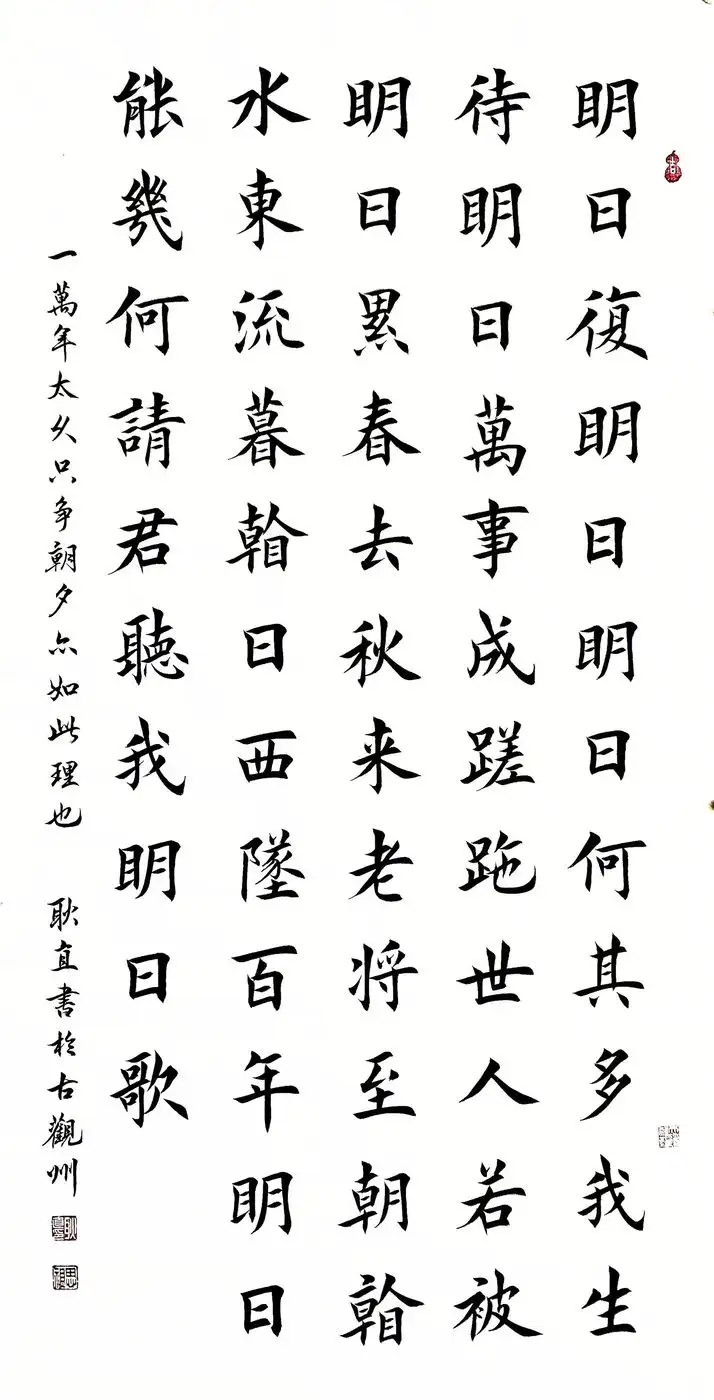 明日復明日明日何其多我生
待明日萬事成蹉跎世人若被
明日累春去秋来老将至朝看
水東流暮看日西墜百年明日
能幾何請君聽我明日歌
一萬年太久只争朝夕亦如此理也 耿直書於古觀州